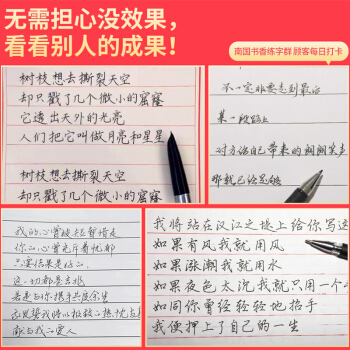 无需担心没效果，
看看别人的成果！
南国书香练字群 顾客每日打卡
树枝想去撕裂天空
却只戳了几个微小的窟窿
它透出天外的光亮
人们把它叫做月亮和星星
树枝想去撕裂天空
却只戳了几个微小的窟窿
不一定非要走到最后
某一段路上
对方给自己带来的
那就已经足够
我的心曾被
你的心曾
只要结果是
这一切都
若是与你携手共度余生
我将站在汉江之堤上给你写这
如果有风我就用风
如果涨潮我就用水
如果夜色太沉我就只用一个
如同你曾经轻轻地抬手
我便押上了自己的一生